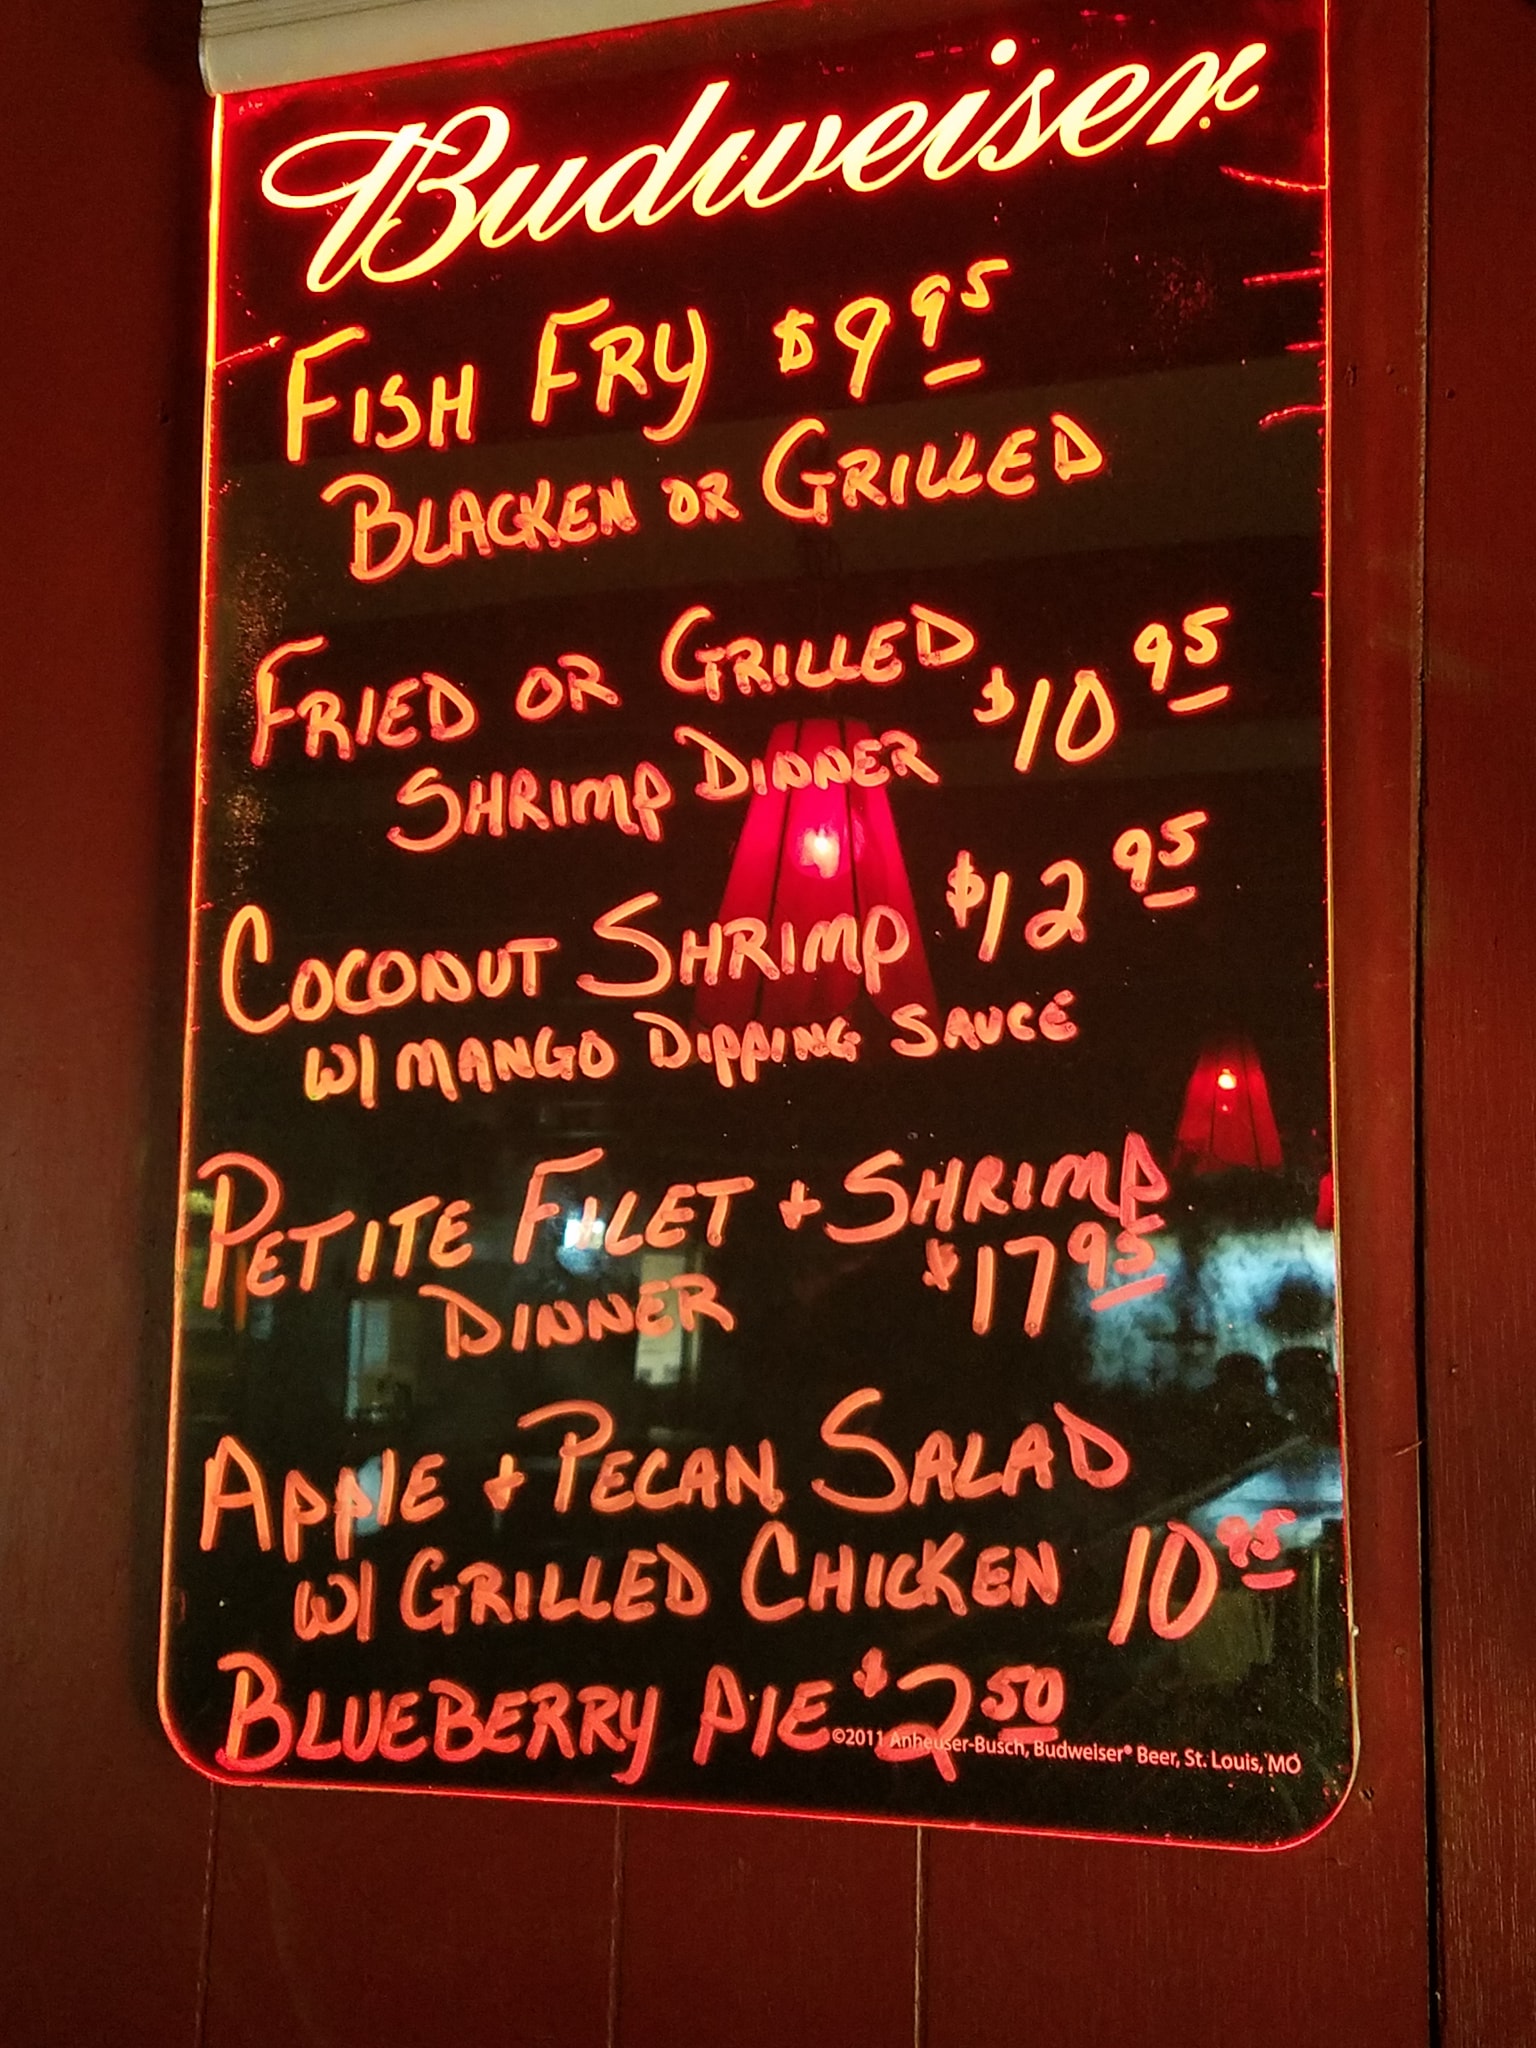 Budweiser
FISH FRY $9 95
BLACKEN OR GRILLED
FRIED OR GRILLED
SHRIMP DINNER $10 95
COCONUT SHRIMP $12 95
W/ MANGO DIPPING SAUCE
PETITE FILET + SHRIMP
DINNER $17 95
APPLE + PECAN SALAD
W/ GRILLED CHICKEN 10 95
BLUEBERRY PIE $2 50
©2011 Anheuser-Busch, Budweiser® Beer, St. Louis, MO